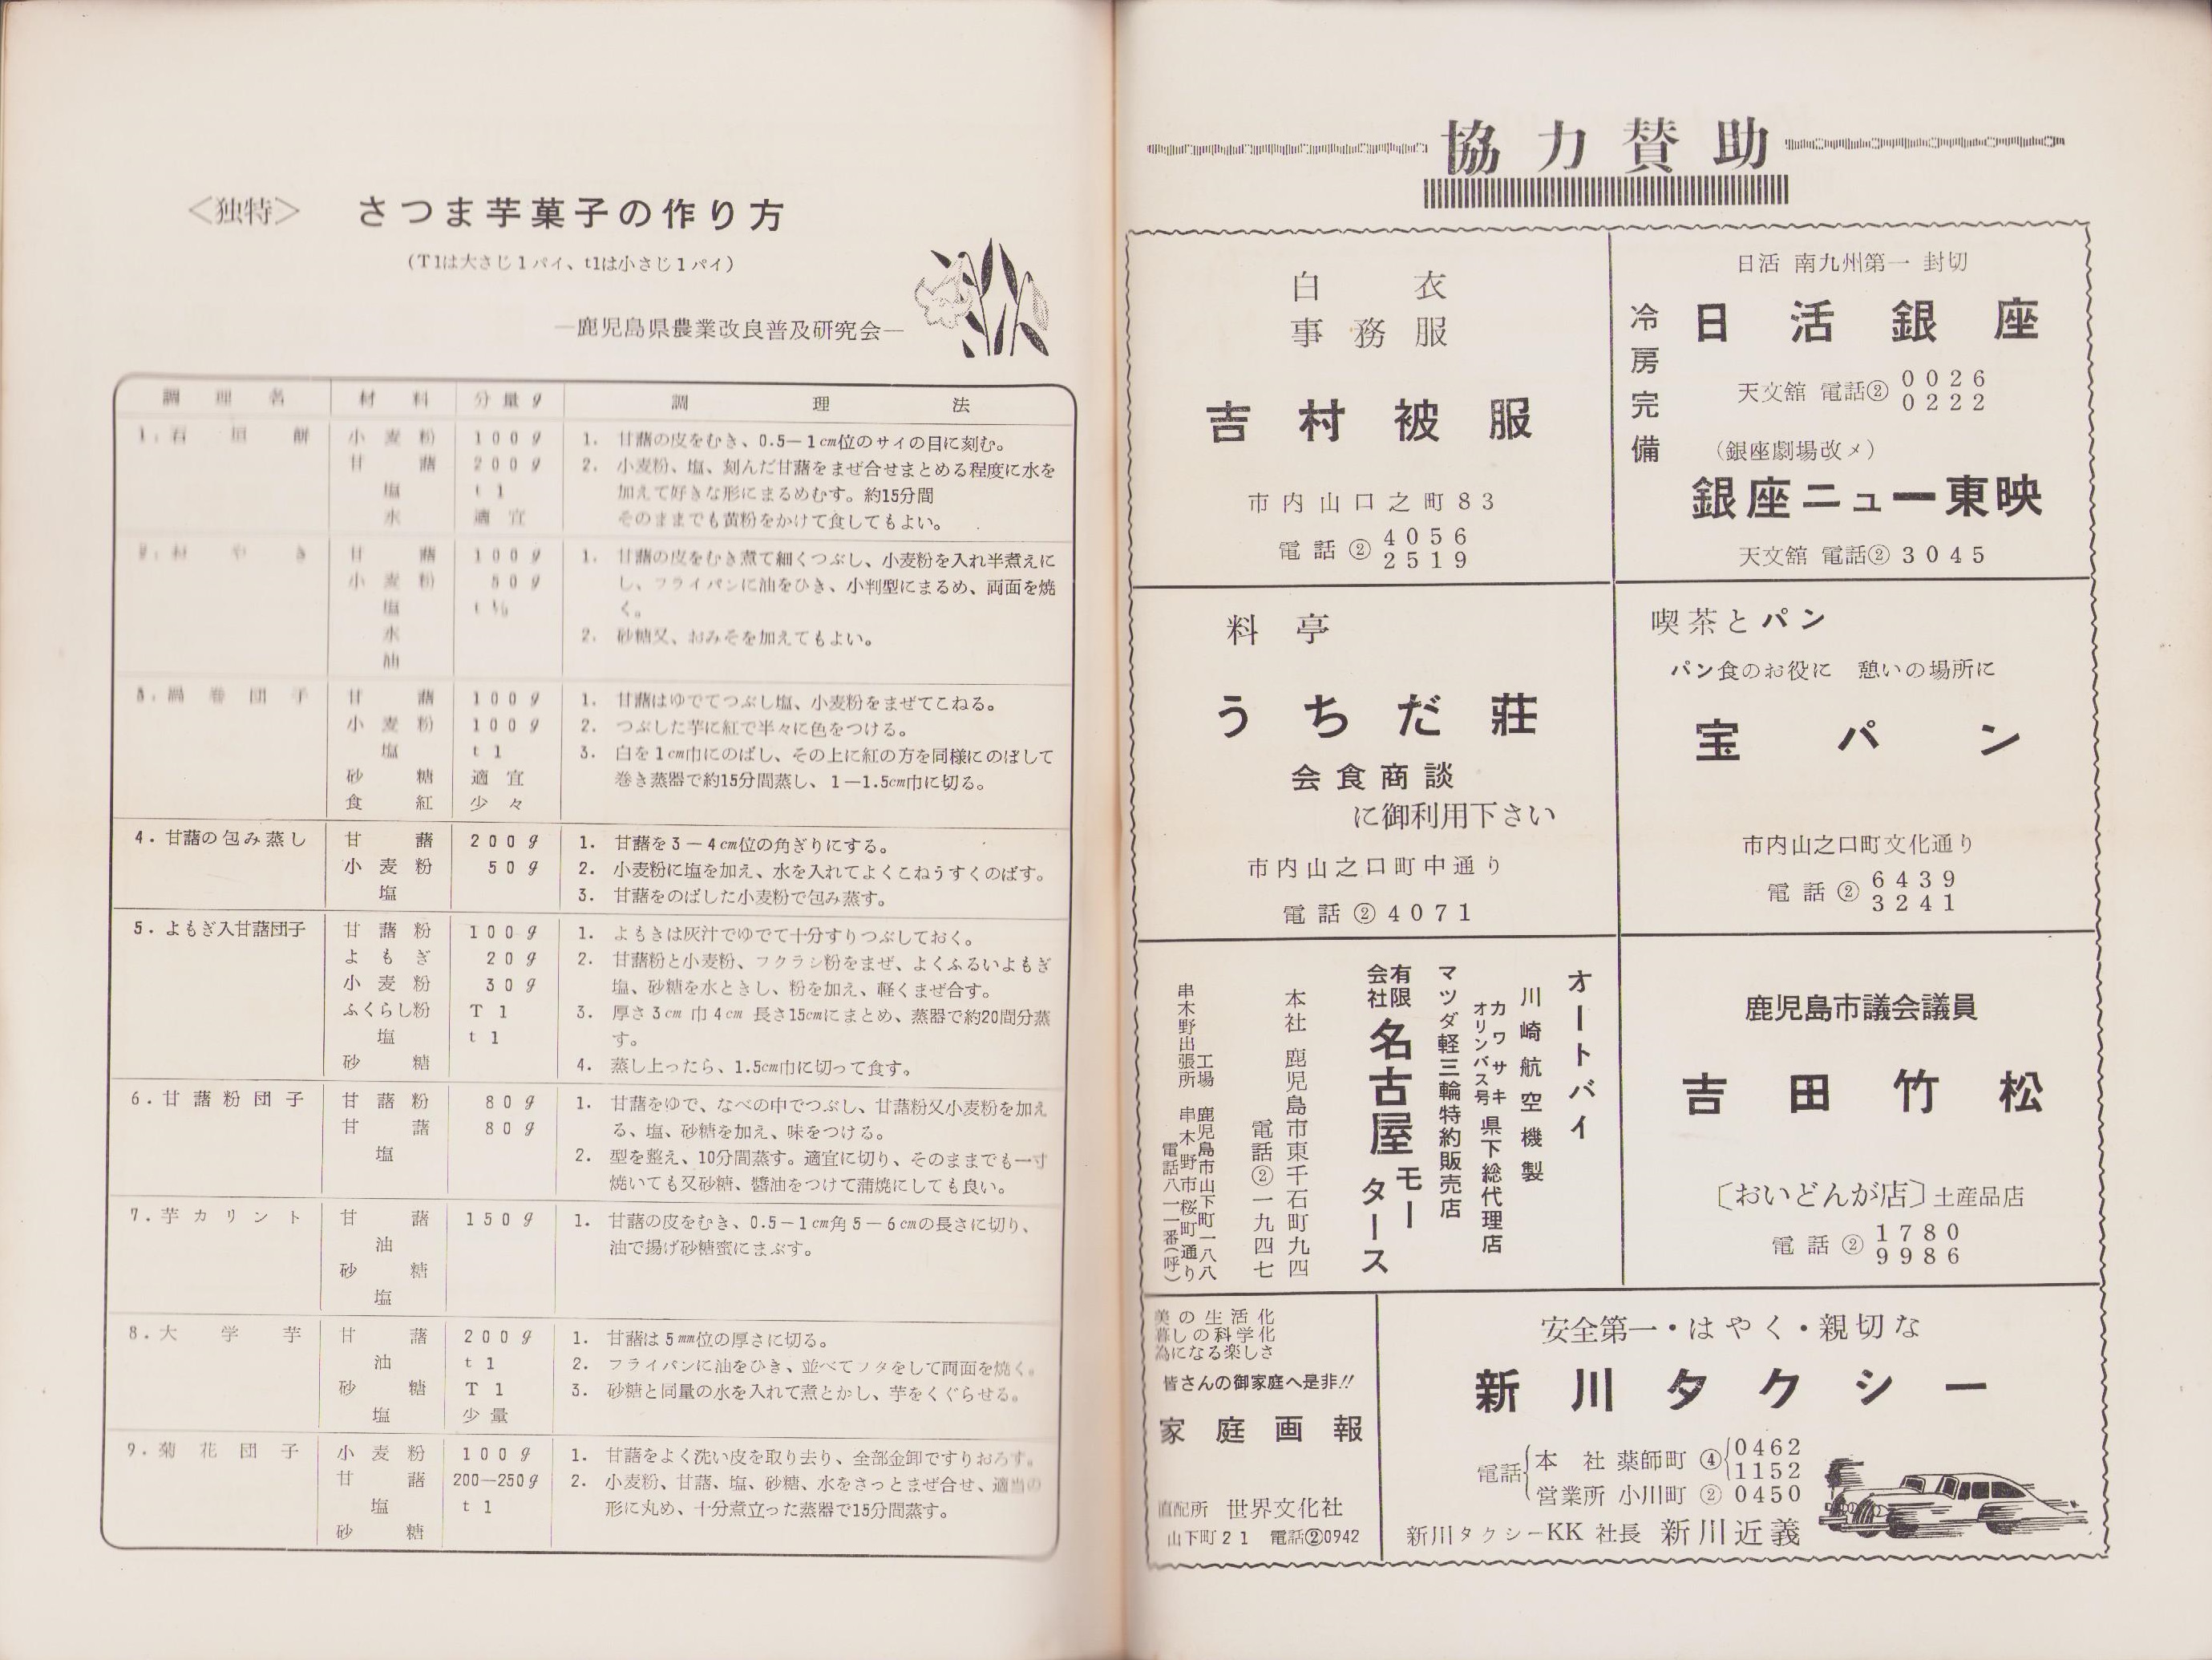 ＜独特＞　さつま芋菓子の作り方
(T1は大さじ1パイ、t1は小さじ1パイ)
―鹿児島県農業改良普及研究会―
調理名　材料　分量g　調理法
1．石垣餅
小麦粉　100g
甘藷　200g
塩　t1
水　適宜
1．甘藷の皮をむき、0.5－1cm位のサイの目に刻む。
2．小麦粉、塩、刻んだ甘藷をまぜ合せまとめる程度に水を
加えて好きな形にまるめむす。約15分間
そのままでも黄粉をかけて食してもよい。
甘藷　100g
小麦粉　50g
塩
水
油
1．甘藷の皮をむき煮て細くつぶし、小麦粉を入れ半煮えに
し、フライパンに油をひき、小判型にまるめ、両面を焼
く。
2．砂糖又、おみそを加えてもよい。
3．渦巻団子
甘藷　100g
小麦粉　100g
塩　t1
砂糖　適宜
食紅　少々
1．甘藷はゆでてつぶし塩、小麦粉をまぜてこねる。
2．つぶした芋に紅で半々に色をつける。
3．白を1cm巾にのばし、その上に紅の方を同様にのばして
巻き蒸器で約15分間蒸し、1－1.5cm巾に切る。
4．甘藷の包み蒸し
甘藷　200g
小麦粉　50g
塩
1．甘藷を3－4cm位の角ぎりにする。
2．小麦粉に塩を加え、水を入れてよくこねうすくのばす。
3．甘藷をのばした小麦粉で包み蒸す。
5．よもぎ入甘藷団子
甘藷粉　100g
よもぎ　20g
小麦粉　30g
ふくらし粉　T1
塩　t1
砂糖
1．よもきは灰汁でゆでて十分すりつぶしておく。
2．甘藷粉と小麦粉、フクラシ粉をまぜ、よくふるいよもぎ
塩、砂糖を水ときし、粉を加え、軽くまぜ合す。
3．厚さ3cm 巾4cm 長さ15cmにまとめ、蒸器で約20間分蒸
す。
4．蒸し上ったら、1.5cm巾に切って食す。
6．甘藷粉団子
甘藷粉　80g
甘藷　80g
塩
1．甘藷をゆで、なべの中でつぶし、甘藷粉又小麦粉を加え
る、塩、砂糖を加え、味をつける。
2．型を整え、10分間蒸す。適宜に切り、そのままでも一寸
焼いても又砂糖、醬油をつけて蒲焼にしても良い。
7．芋カリント
甘藷　150g
油
砂糖
塩
1．甘藷の皮をむき、0.5－1cm角5－6cmの長さに切り、
油で揚げ砂糖蜜にまぶす。
8．大学芋
甘藷　200g
油　t1
砂糖　T1
塩　少量
1．甘藷は5mm位の厚さに切る。
2．フライパンに油をひき、並べてフタをして両面を焼く。
3．砂糖と同量の水を入れて煮とかし、芋をくぐらせる。
9．菊花団子
小麦粉　100g
甘藷　200－250g
塩　t1
砂糖
1．甘藷をよく洗い皮を取り去り、全部金卸ですりおろす。
2．小麦粉、甘藷、塩、砂糖、水をさっとまぜ合せ、適当の
形に丸め、十分煮立った蒸器で15分間蒸す。
協力賛助
白衣
事務服
吉村被服
市内山口之町83
電話② 4056
2519
日活 南九州第一 封切
冷房完備
日活銀座
天文館 電話② 0026
0222
(銀座劇場改メ)
銀座ニュー東映
天文館 電話② 3045
料亭
うちだ荘
会食商談
に御利用下さい
市内山之口町中通り
電話② 4071
喫茶とパン
パン食のお役に　憩いの場所に
宝パン
市内山之口町文化通り
電話② 6439
3241
オートバイ
川崎航空機製
カワサキ
オリンパス号
県下総代理店
マツダ軽三輪特約販売店
有限会社 名古屋モータース
本社 鹿児島市東千石町九四
電話②一九四七
工場 鹿児島市山下町一八八
串木野出張所 串木野市桜町通り
電話八一一番(呼)
鹿児島市議会議員
吉田竹松
〔おいどんが店〕土産品店
電話② 1780
9986
美の生活化
暮しの科学化
為になる楽しさ
皆さんの御家庭へ是非!!
家庭画報
直配所　世界文化社
山下町21　電話②0942
安全第一・はやく・親切な
新川タクシー
電話 本　社 薬師町 ④ 0462
1152
営業所 小川町 ② 0450
新川タクシーKK 社長 新川近義